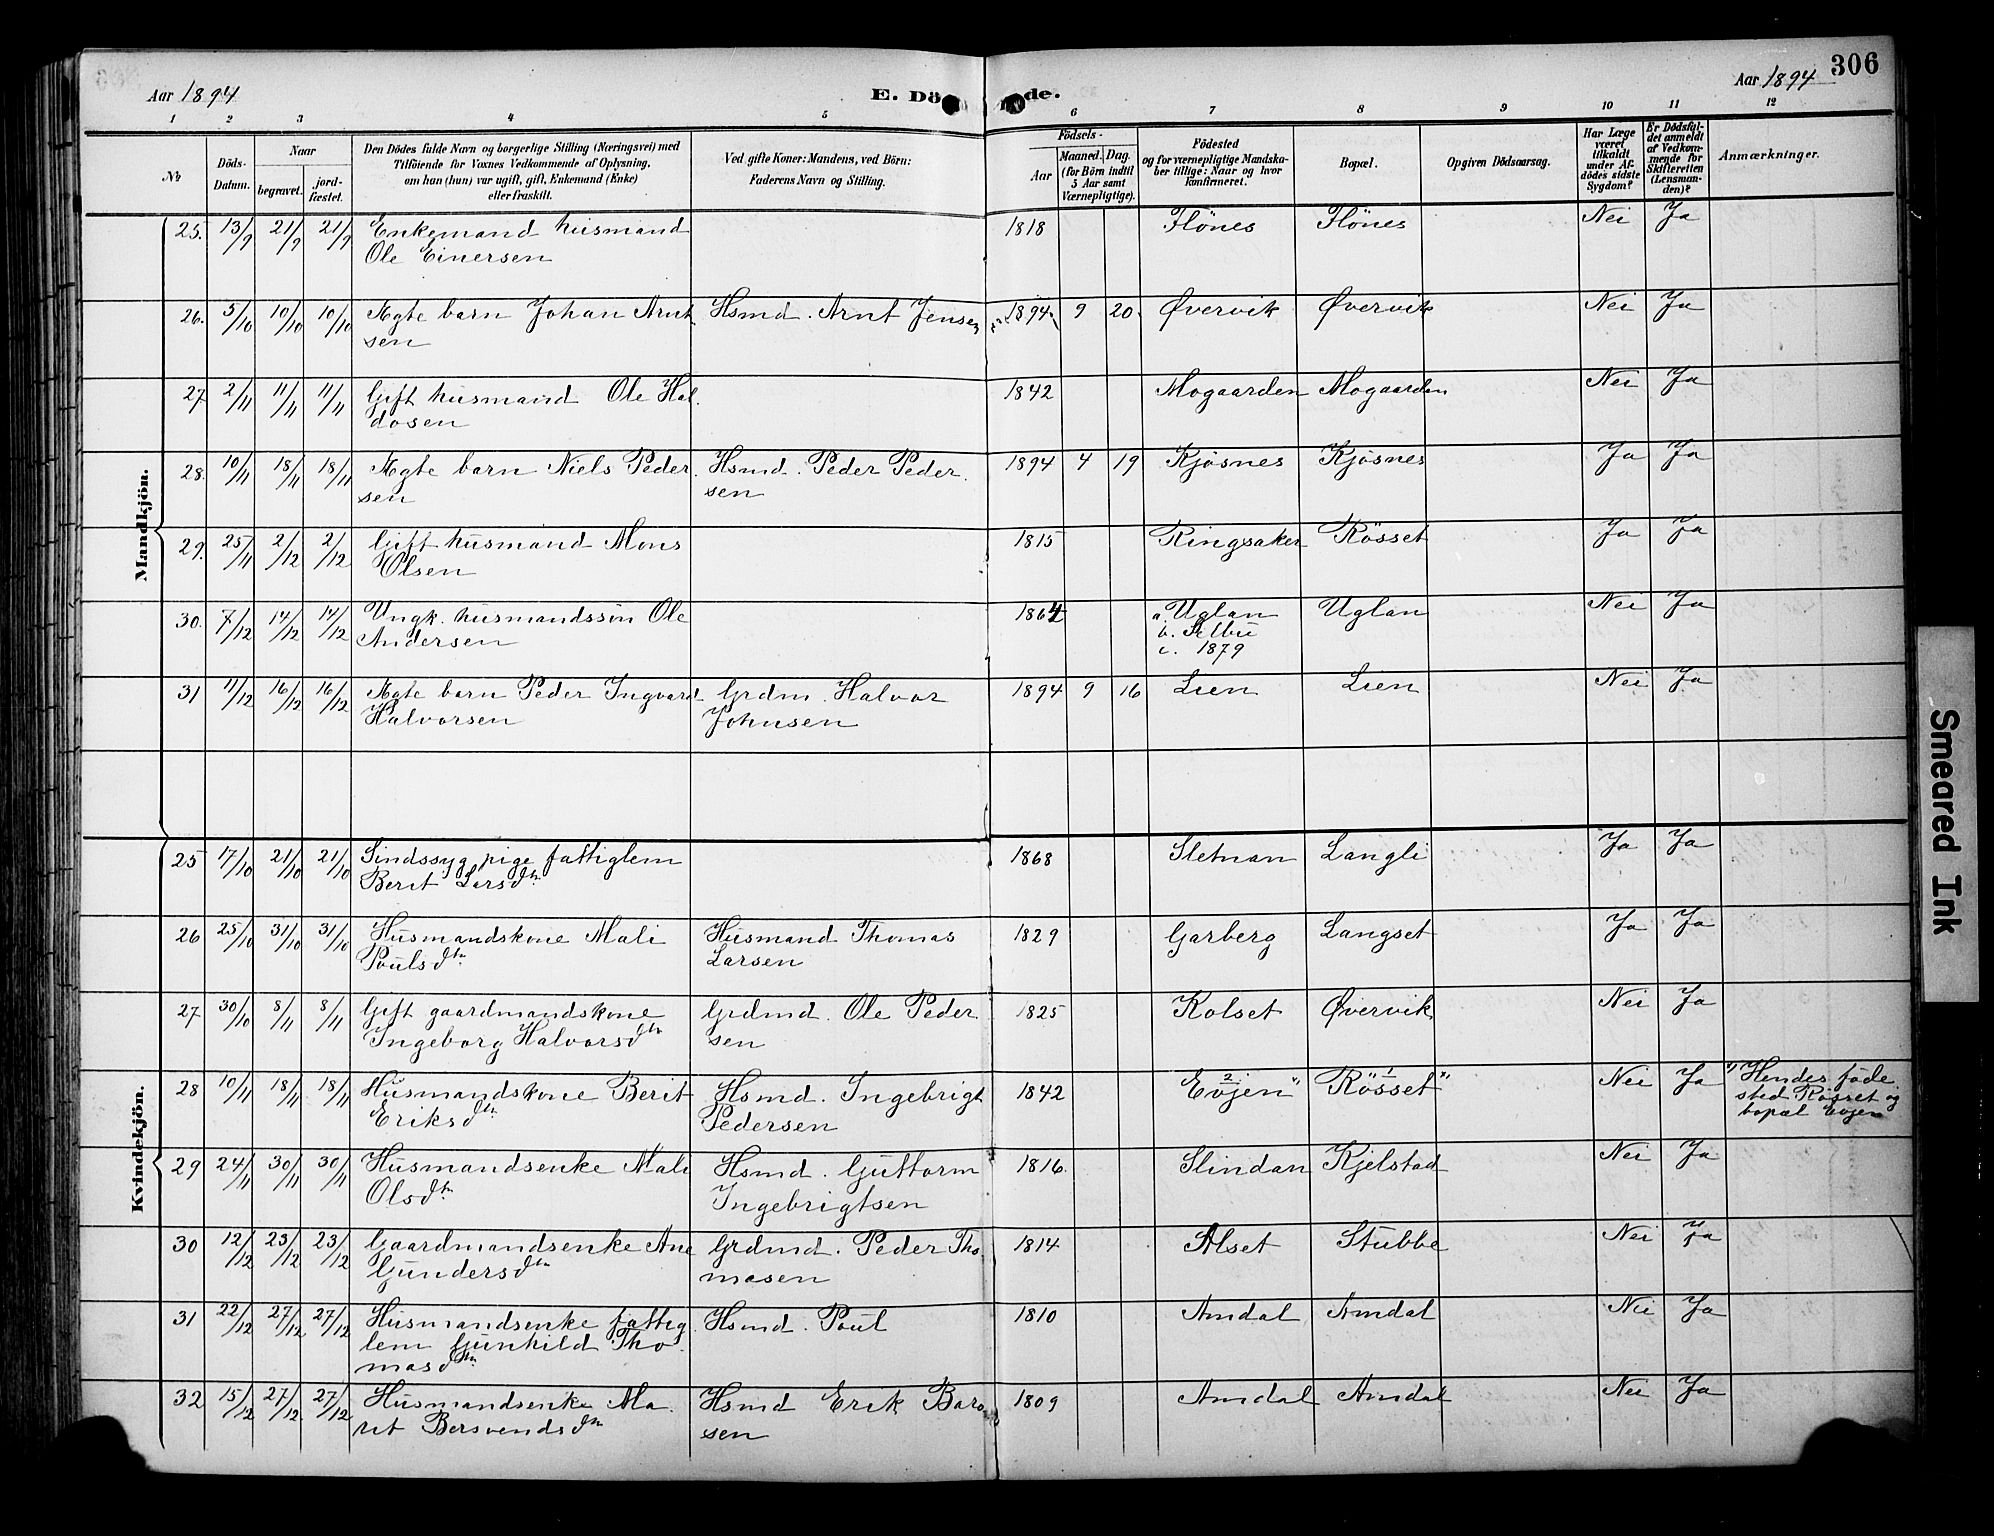 Aar 1894
E. Döde.
Aar 1894 306
1 2 3 4 5 6 7 8 9 10 11 12
No
Döds-
Datum.
Naar
begravet.
jord-
fæstet.
Den Dödes fulde Navn og borgerlige Stilling (Næringsvei) med
Tilföiende for Voxnes Vedkommende af Oplysning,
om han (hun) var ugift, gift, Enkemand (Enke)
eller fraskilt.
Ved gifte Koner: Mandens, ved Börn:
Faderens Navn og Stilling.
Födsels-
Aar
Maaned. Dag.
(for Börn indtil
5 Aar samt
Værnepligtige).
Födested
og for værnepligtige Mandska-
ber tillige: Naar og hvor
konfirmeret.
Bopæl.
Opgiven Dödsaarsag.
Har Læge
været
tilkaldt
under Af-
dödes sidste
Sygdom?
Er Dödsfal-
det anmeldt
af Vedkom-
mende for
Skifteretten
(Lensman-
den)?
Anmærkninger.
Mandkjön.
25. 13/9 21/9 21/9 Enkemand husmand 1818 Flönes Flönes Nei Ja
Ole Einersen
26. 5/10 10/10 10/10 Ægte barn Johan Arnt Hsmd. Arnt Jensen 1894 9 20. Øvervik Øvervik Nei Ja
sen
27 2/11 11/11 11/11 Gift husmand Ole Hal. 1842 Mogaarden Mogaarden Nei Ja
dosen
28. 10/11 18/11 18/11 Ægte barn Niels Peder Hsmd. Peder Peder. 1894 4 19 Kjösnes Kjösnes Ja Ja
sen sen
29. 25/11 2/12 2/12 Gift husmand Mons 1815 Ringsaker Rösset Ja Ja
Olsen
30. 7/12 14/12 14/12 Ungk. husmandssön Ole 1864 a. Uglan Uglan Nei Ja
Andersen b. Selbu
c. 1879
31 11/12 16/12 16/12 Ægte barn Peder Ingvard Grdm. Halvor 1894 9 16 Lien Lien Nei Ja
Halvorsen Johnsen
Kvindekjön.
25 17/10 21/10 21/10 Sindssyg pige fattiglem 1868 Sletnan Langli Ja Ja
Berit Larsdtr
26 25/10 31/10 31/10 Husmandskone Mali Husmand Thomas 1829 Garberg Langset Ja Ja
Poulsdtr Larsen
27 30/10 8/11 8/11 Gift gaardmandskone Grdmd. Ole Peder 1825 Kolset Øvervik Nei Ja
Ingeborg Halvorsdtr sen
28 10/11 18/11 18/11 Husmandskone Berit Hsmd. Ingebrigt 1842 2 Evjen" "1 Rösset" Nei Ja ") Hendes föde
Eriksdtr Pedersen sted Rösset og
bopæl Evjen
29 24/11 30/11 30/11 Husmandsenke Mali Hsmd. Guttorm 1816. Slindan Kjelstad Nei Ja
Olsdtr Ingebrigtsen
30 12/12 23/12 23/12 Gaardmandsenke Ane Grdmd. Peder Tho 1814 Alset Stubbe Nei Ja
Gundersdtr masen
31 22/12 27/12 27/12 Husmandsenke fattig Hsmd. Poul 1810 Amdal Amdal Nei Ja
lem Gunhild Tho
masdtr
32 15/12 27/12 27/12 Husmandsenke Ma. Hsmd Erik Baro 1809 Amdal Amdal Nei Ja
rit Bersvendsdtr sen
Smeared Ink